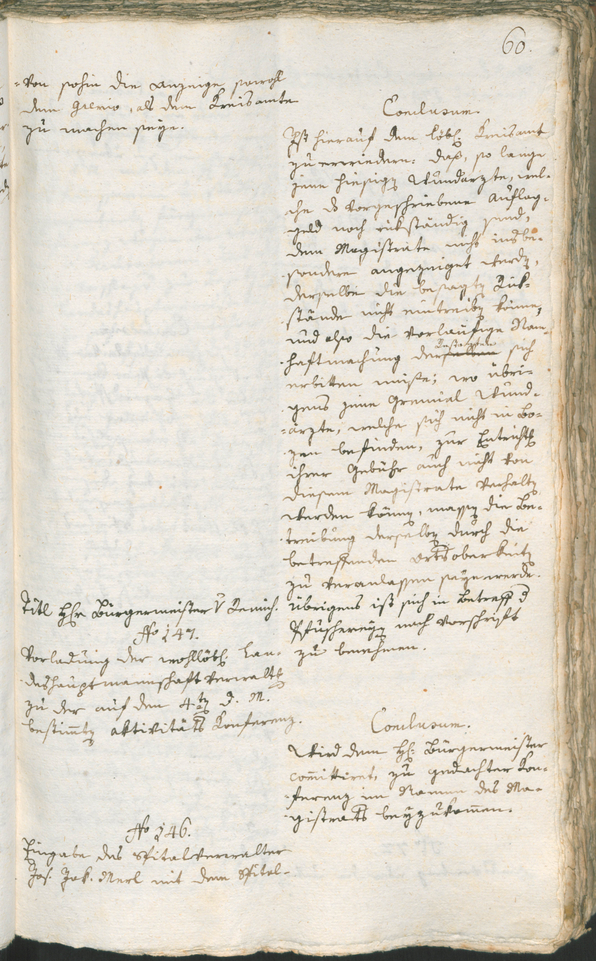 60.
von sohin die Anzeige sowohl
dem Gremio, als dem Kreisamte
zu machen seye.
Conclusum.
Ist hierauf dem löbl. Kreisamt
zu erwiedern: daß, so lange
jene hiesige Wundärzte, wel-
che das vorgeschriebene Auflag-
geld noch rükständig sind,
dem Magistrate nicht insbe-
sondere angezeiget werden,
derselbe die besagten Rük-
stände nicht eintreiben könne,
und also die vorläufige Nam-
haftmachung derselben sich
erbitten müße; wo übri-
gens jene Gremial Wund-
ärzte, welche sich nicht in Bo-
zen befinden, zur Entricht.
ihrer Gebühr auch nicht von
diesem Magistrate verhalten
werden können, massen die Be-
treibung derselben durch die
betreffenden Ortsobrigkeiten
zu veranlassen seyn werde.
Übrigens ist sich in Betreff d
Pfuschereyen nach Vorschrift
zu benehmen.
Titl Hr Bürgermeister v
No 147.
Vorladung der wohllöbl. Lan-
deshauptmannschaft Verwalt.
zu der auf den 4ten d. M.
bestimmten Aktivitäts Konferenz.
Conclusum.
Wird dem H. Bürgermeister
committiret, zu gedachter Kon-
ferenz im Namen des Ma-
gistrats beyzukommen.
No 146.
Eingabe des Spitalverwalter
Jos. Jak. Merl mit dem Spital-